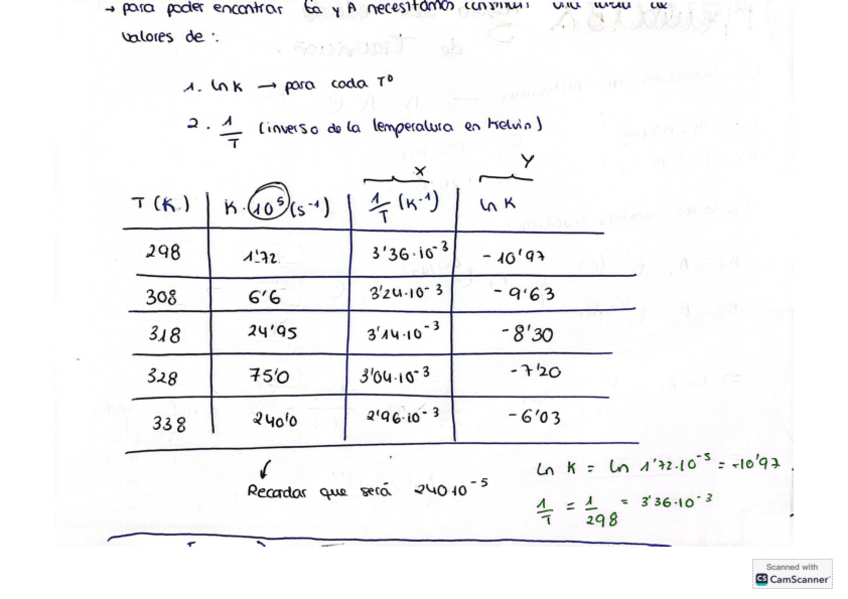 → para poder encontrar Ea y A necesitamos
valores de :
1. ln K → para cada Tº
2. 1/T (inverso de la temperatura en Kelvin)
X Y
T (K) K·10⁵ (s⁻¹) 1/T (K⁻¹) ln K
298 1'72 3'36·10⁻³ -10'97
308 6'6 3'24·10⁻³ -9'63
318 24'95 3'14·10⁻³ -8'30
328 75'0 3'04·10⁻³ -7'20
338 240'0 2'96·10⁻³ -6'03
Recordar que será 240·10⁻⁵
ln K = ln 1'72·10⁻⁵ = -10'97
1/T = 1/298 = 3'36·10⁻³
Scanned with
CS CamScanner